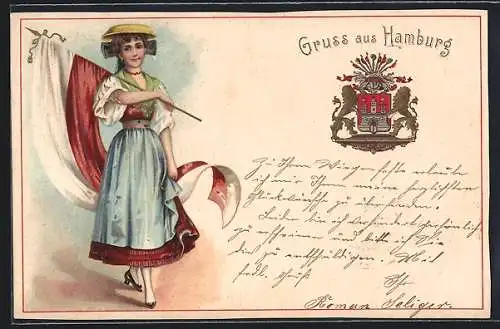 Gruss aus Hamburg
Zu Ihrem Wiegenfeste erlaube
ich mir Ihnen meine herzlichsten
Glückwünsche zu übersenden.
Leider bin ich verhindert persönlich
zu erscheinen und bitte ich Sie
dies zu entschuldigen. Mit
frdl. Gruß
Ihr
Roman Saliger